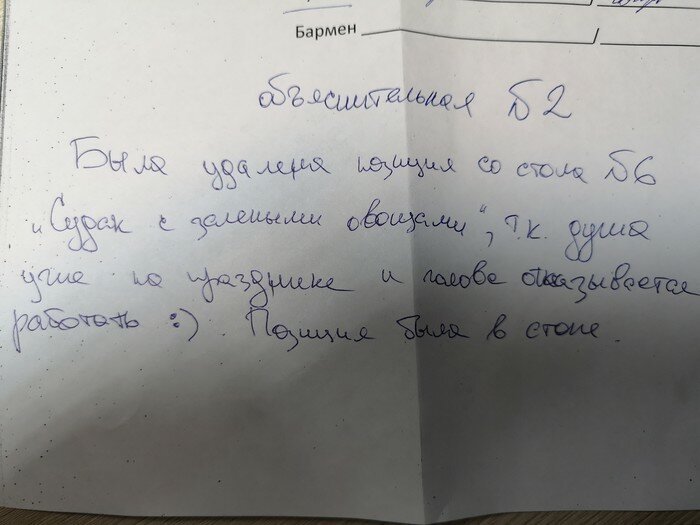 Бармен
объяснительная №2
Была удалена позиция со стола №6
„Судак с зелеными овощами“, т.к. душа
уже на празднике и голова отказывается
работать :) Позиция была в стопе.